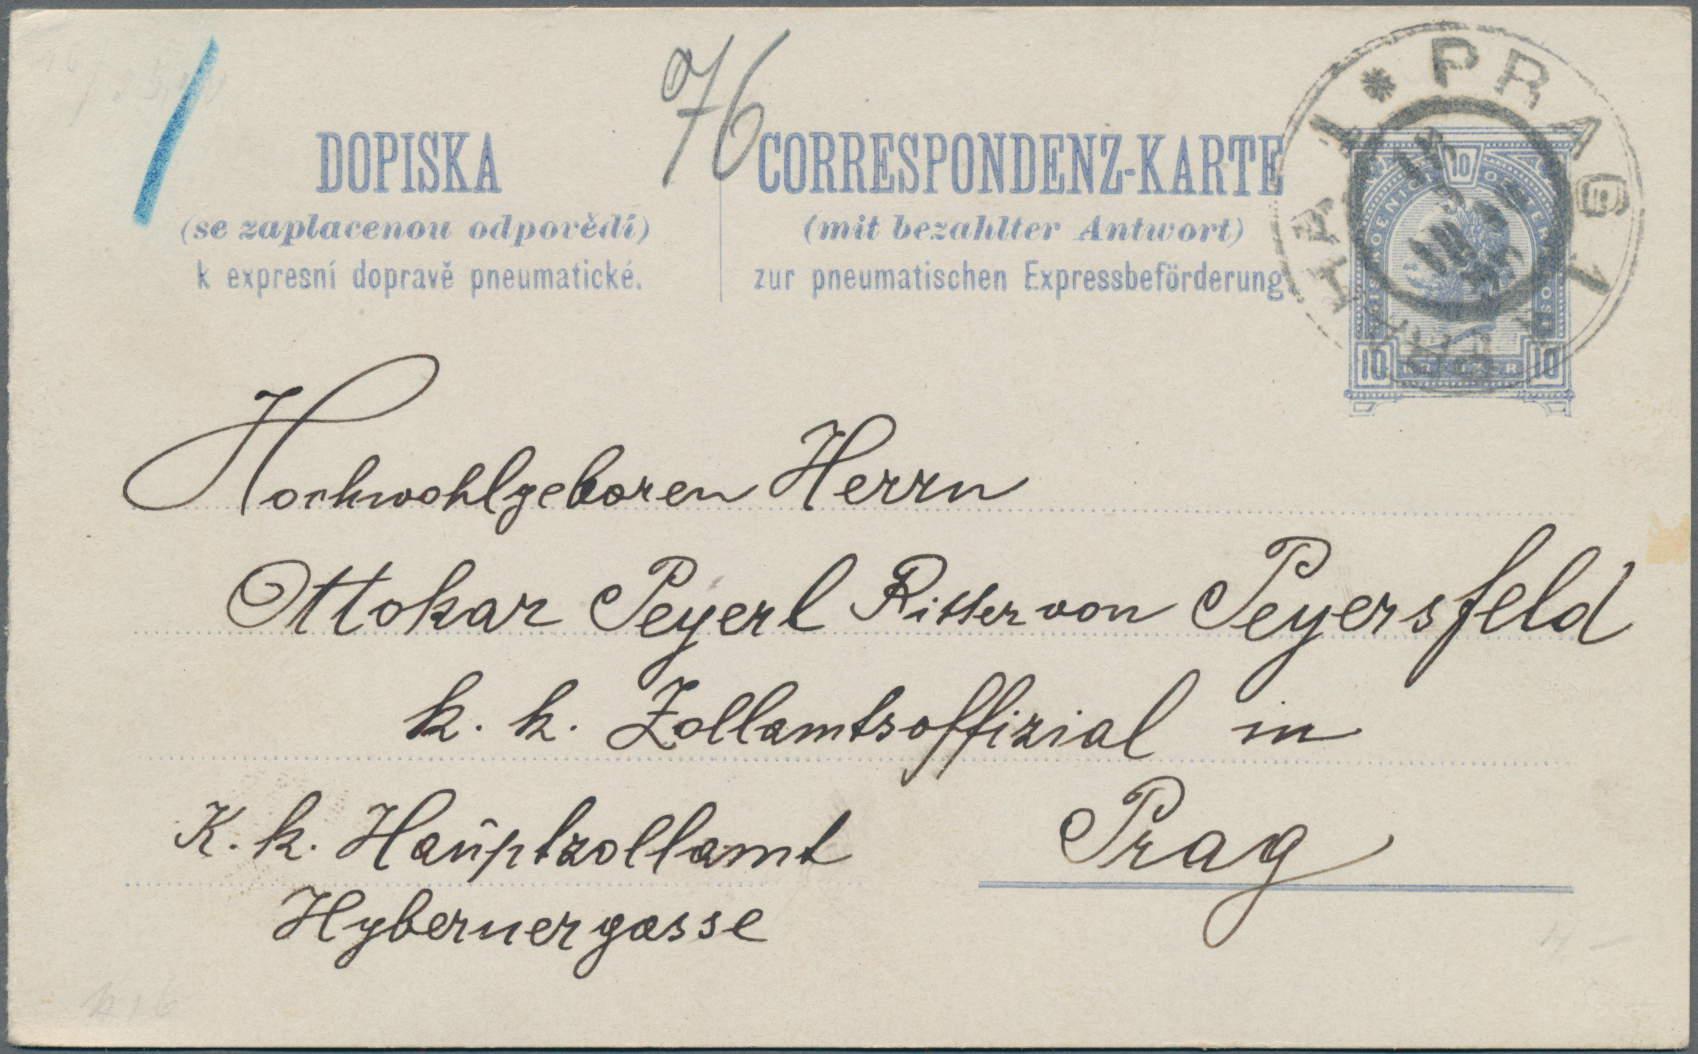 76
DOPISKA
(se zaplacenou odpovědí)
k expresní dopravě pneumatické.
CORRESPONDENZ-KARTE
(mit bezahlter Antwort)
zur pneumatischen Expressbeförderung
PRAG 1
10
10 10
Hochwohlgeboren Herrn
Ottokar Peyerl Ritter von Peyersfeld
k. k. Zollamtsoffizial in
K. k. Hauptzollamt Prag
Hybernergasse